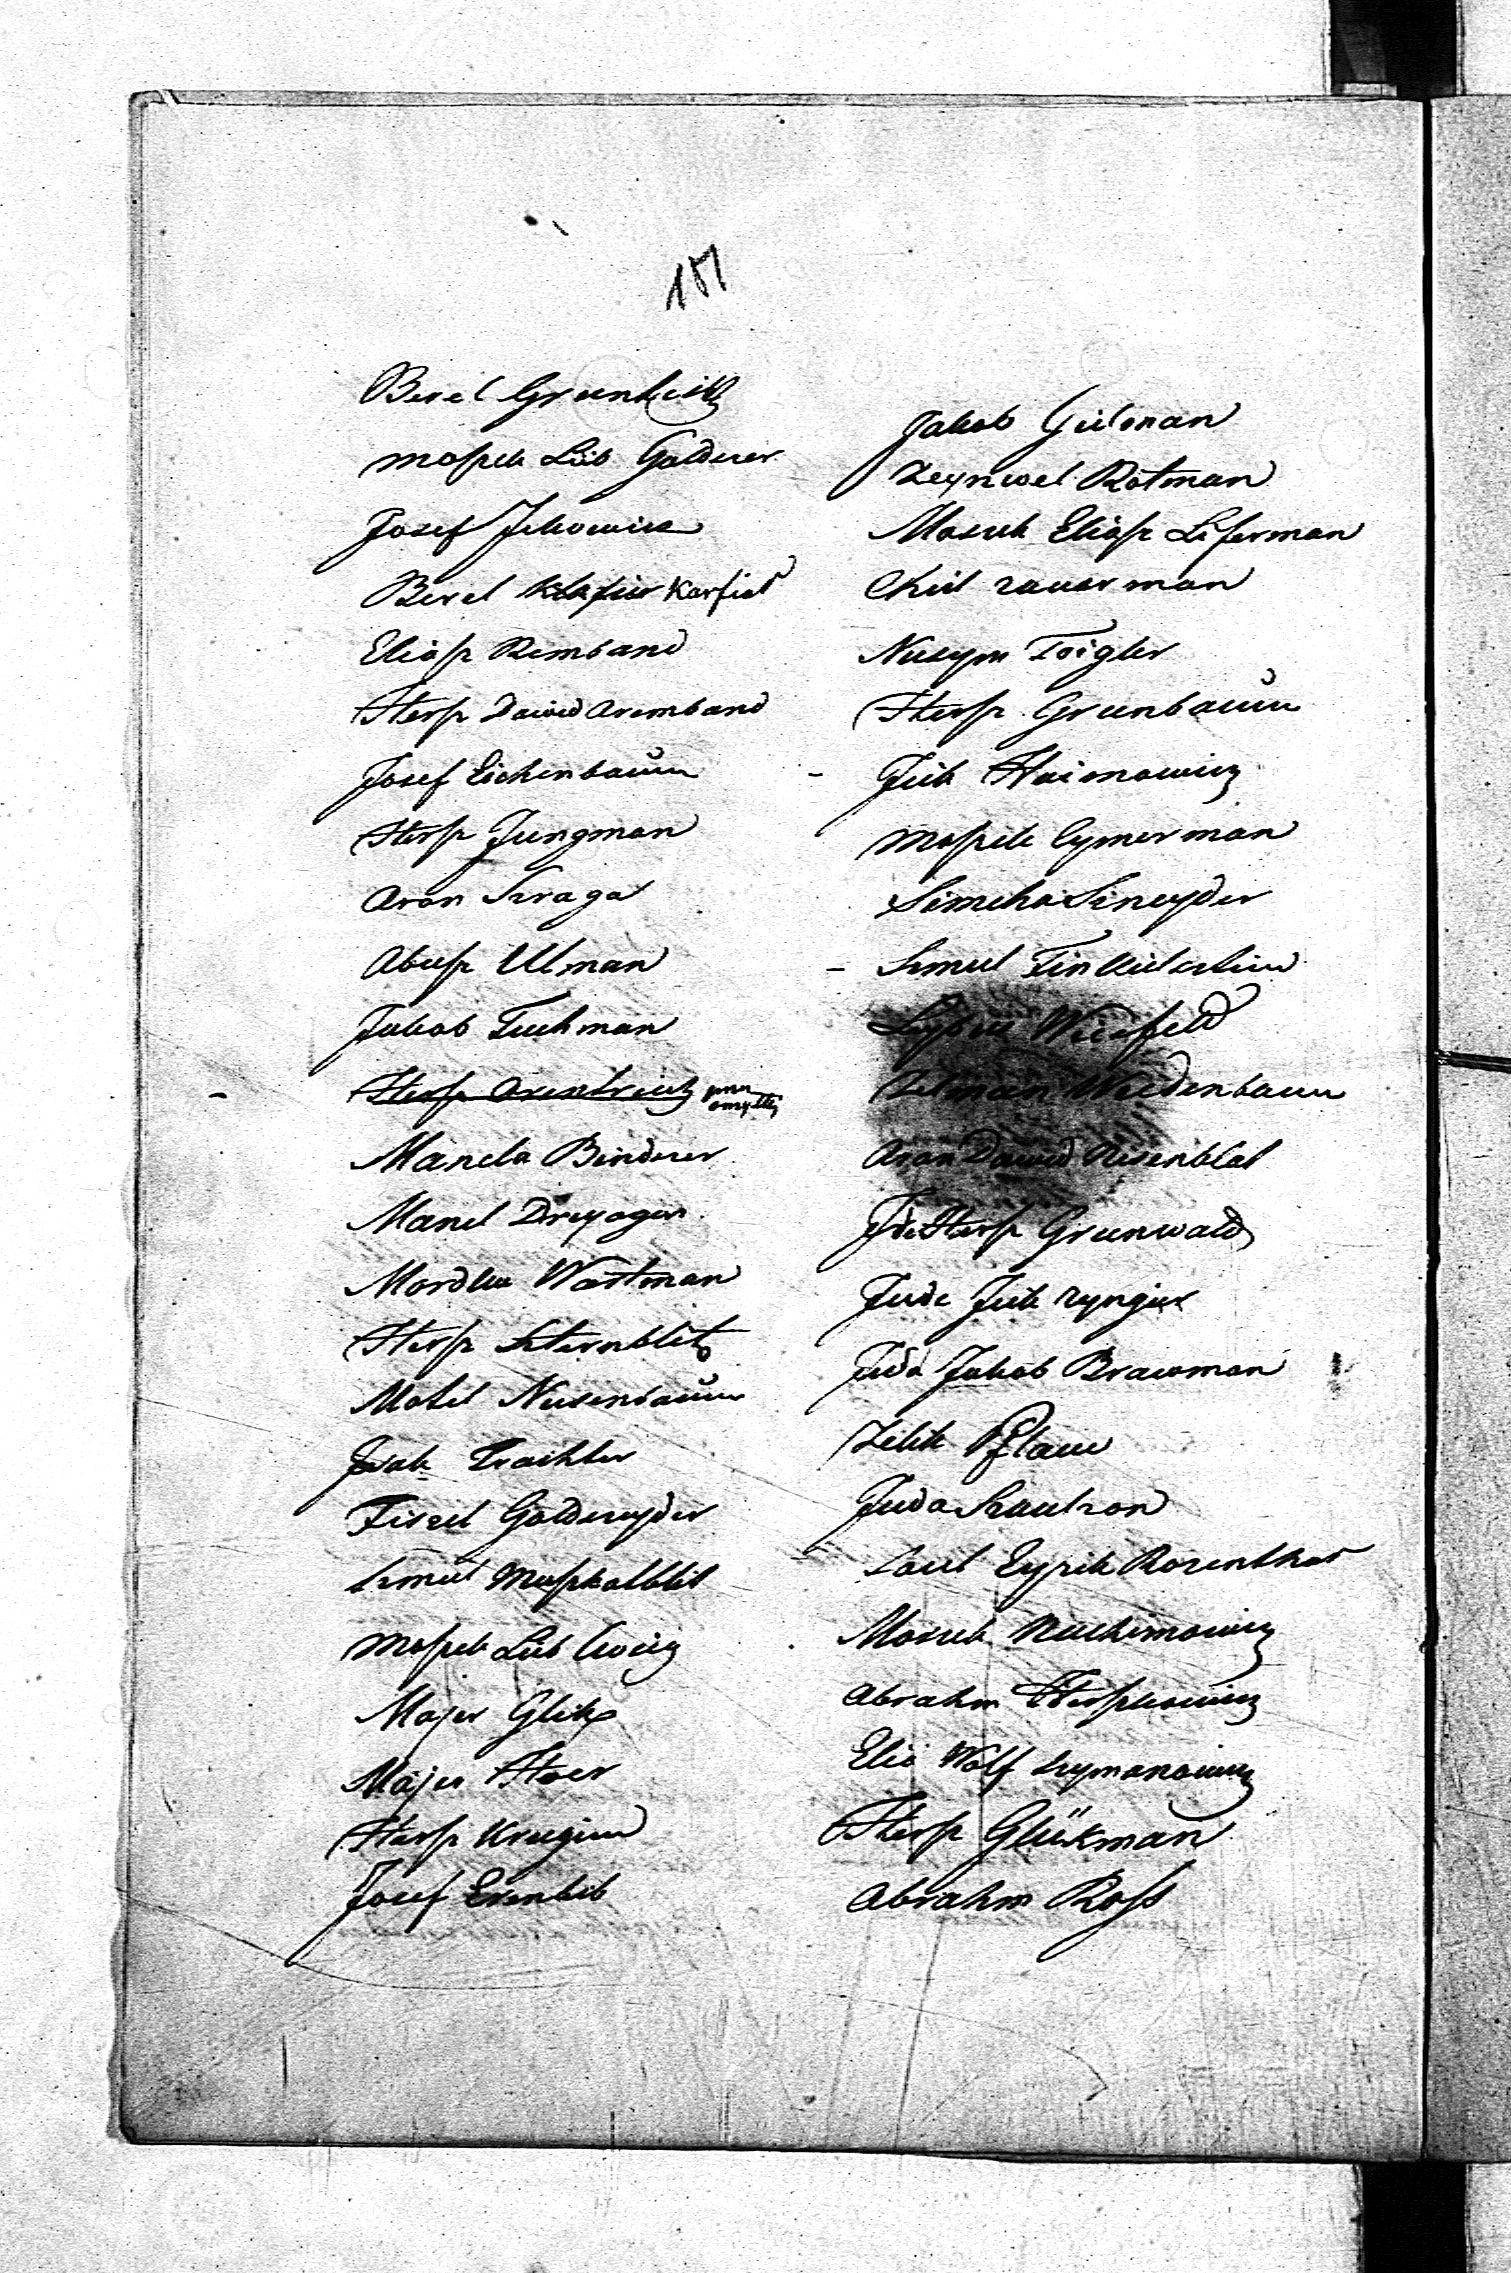 157
Berel Grunheitz
Moszek Leib Golderer
Josef Jckowicz
Berel Karfiol
Eliasz Remband
Hersz Dawid Aremband
Josef Eichenbaum
Hersz Jungman
Aron Szraga
Abusz Ulman
Jakob Tuchman
Hersz przez omyłkę
Manela Binderer
Manel Dreyager
Mordka Wartman
Hersz Szternblitz
Motel Nusenbaum
Josek Trachter
Fiszel Goldszyder
Szmul Muszkatblit
Moszek Leib Cweig
Majer Glik
Majer Hoer
Hersz Krugiem
Josef Erenlib
Jakob Gielman
Zeynwel Rotman
Mosiek Eliasz Liferman
Chiel zauerman
Nusym Toigler
Hersz Grunbaum
Jcik Haimowicz
Moszek Cymerman
Simcha Sznyder
Szmul Finkielsztein
Weisfeld
Zelman Weidenbaum
Aron Dawid Nisenblat
Jde Hersz Grunwald
Jude Jcik zyngier
Juda Jakob Brawman
Zelik Pflaum
Juda Szaulzon
Saul Eyzik Rozenthar
Mosiek Nuchimowicz
Abrahm Herszkowicz
Elie Wolf Szymonowicz
Hersz Glükman
Abrahm Ross